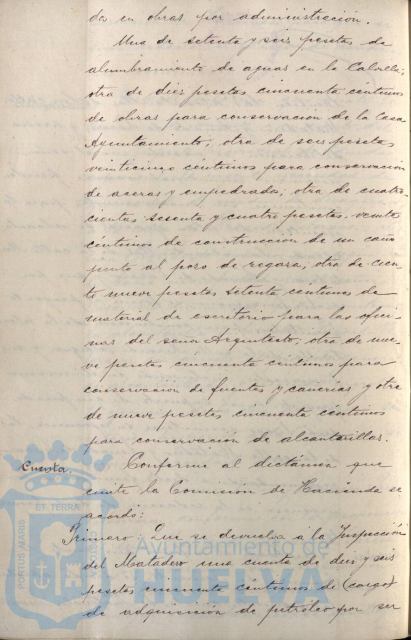 dos en obras por administración.
Una de setenta y seis pesetas de
alumbramiento de aguas en la Calvilla;
otra de diez pesetas cincuenta céntimos
de obras para conservacion de la Casa
Ayuntamiento; otra de seis pesetas
veinticinco céntimos para conservación
de aceras y empedrados; otra de cuatro-
cientas sesenta y cuatro pesetas veinte
céntimos de construccion de un caño
junto al pozo de regara, otra de cien-
to nueve pesetas setenta céntimos de
material de escritorio para las ofici-
nas del señor Arquitecto; otra de nue-
ve pesetas cincuenta céntimos para
conservacion de fuentes y cañerias y otra
de nueve pesetas cincuenta céntimos
para conservación de alcantarillas.
Cuenta. Conforme al dictámen que
emite la Comision de Hacienda se
acordó:
Primero: Que se devuelva a la Inspección
del Matadero una cuenta de diez y seis
pesetas cincuenta céntimos de (cargo)
de adquisición de petróleo por ser
PORTUS MARIS
ET TERRÆ
Ayuntamiento de
HUELVA